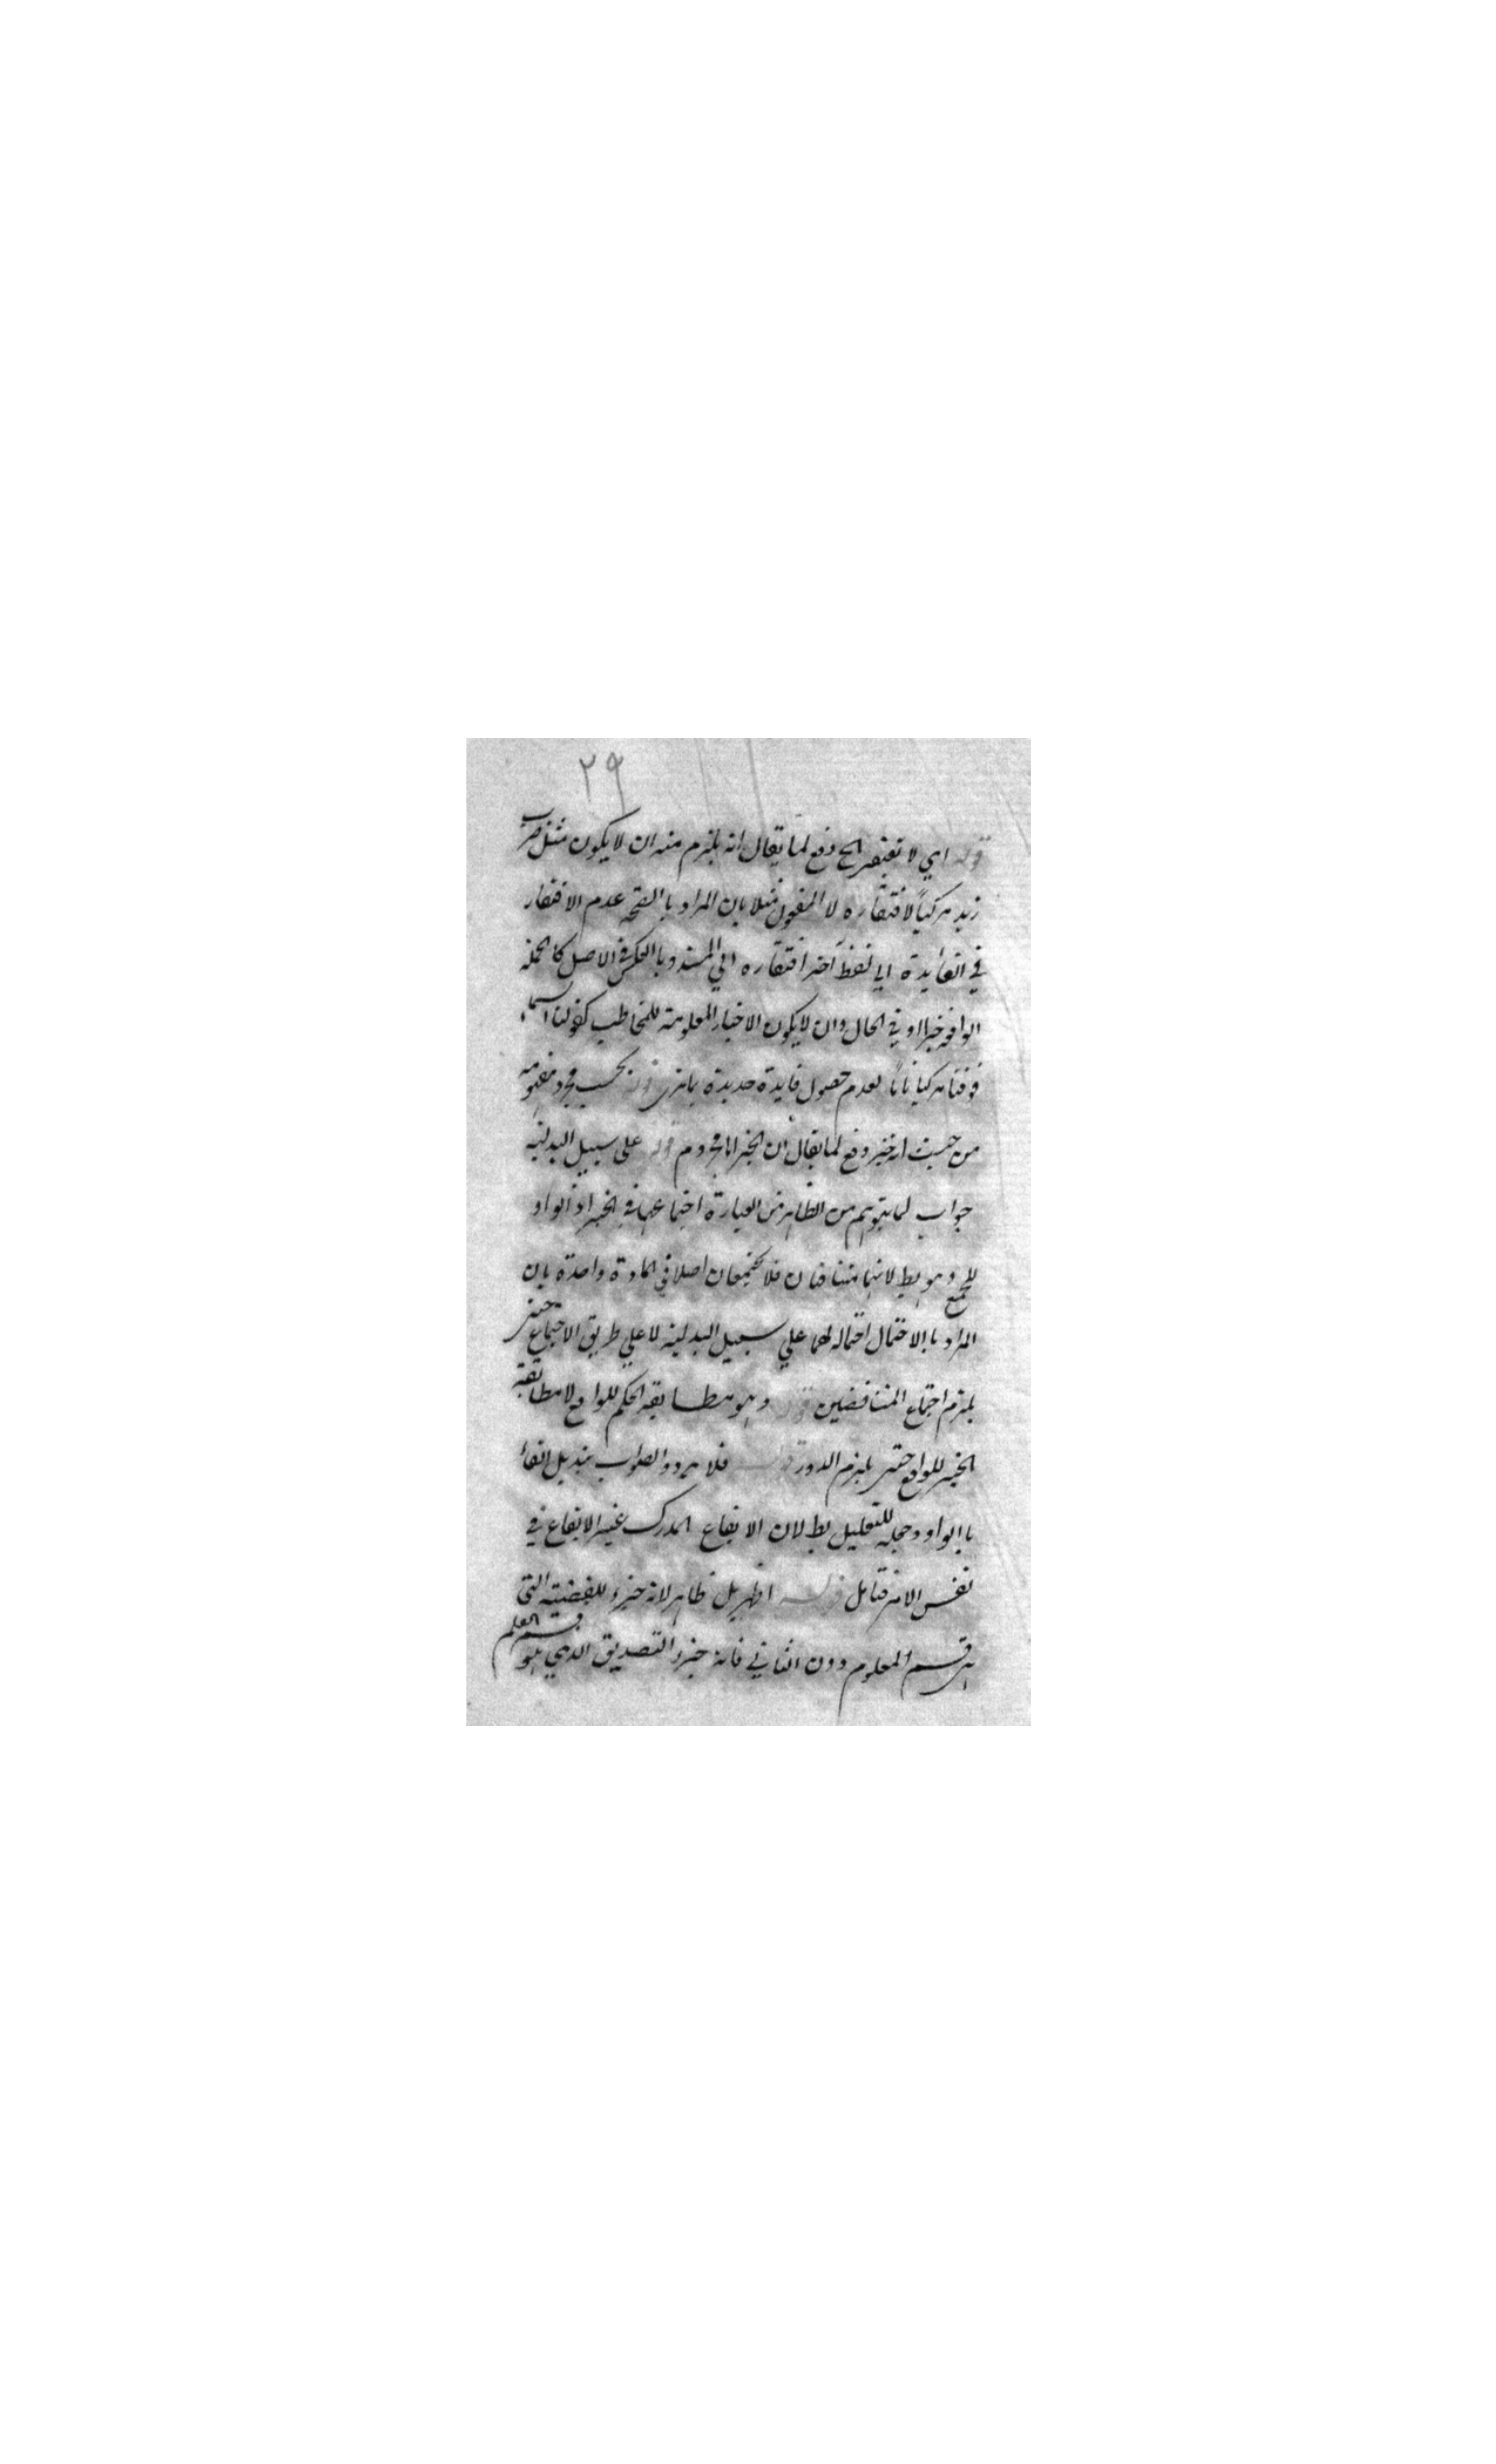 ٢٩
قوله اي لا تفتقر الخ دفع لما يقال انه يلزم منه ان لا يكون مثل ضرب
زيد مركباً لافتقاره لا المفعول مثلا بان المراد بالصحة عدم الافتقار
في الفايدة الي لفظ آخر افتقاره الي المسند وبالعكس في الاصل كالجملة
الواقعة خبرا او في الحال وان لا يكون الاخبار المعلومة للمخاطب كقولنا السماء
فوقنا مركبا تاماً لعدم حصول فايدة جديدة بحسب مجرد مفهومه
من حيث انه خبر دفع لما يقال ان الخبر قوله على سبيل البدلية
جواب لما يتوهم من الظاهر من العبارة اجتماعهما في الخبر اذ الواو
للجمع وهو بط لانهما متنافيان فلا يجتمعان اصلا في مادة واحدة بان
المراد بالاحتمال احتماله لهما علي سبيل البدلية لا علي طريق الاجتماع حتي
يلزم اجتماع المتناقضين قوله وهو مطابقة الحكم للواقع لا مطابقة
الخبر للواقع حتي يلزم الدور قوله فلا يرد والصواب تبديل الفا
بالواو وجعله للتعليل بط لان الايقاع المدرك غير الايقاع في
نفس الامر فتامل قوله اظهر بل ظاهر لانه جزء للقضية التي
هي قسم المعلوم دون الثاني فانه جزء التصديق الذي هو قسم العلم